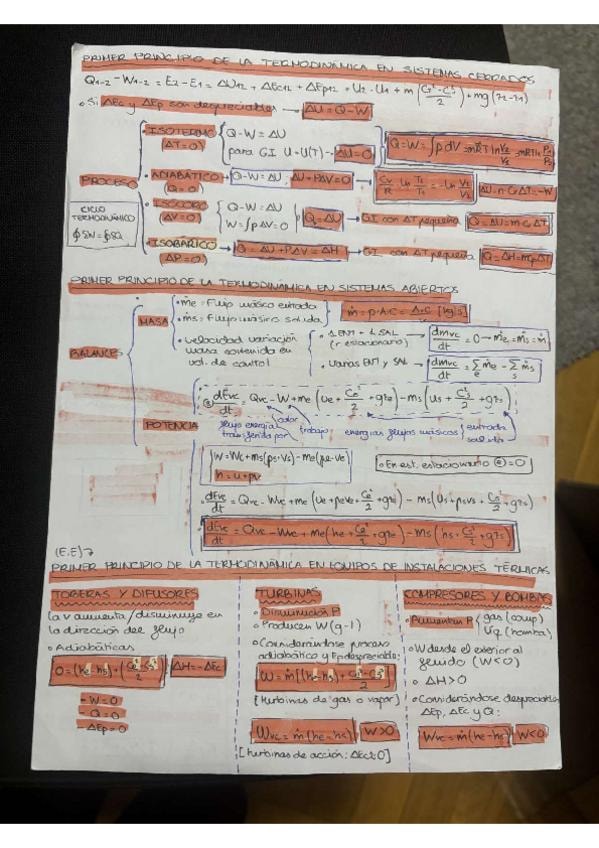 PRIMER PRINCIPIO DE LA TERMODINÁMICA EN SISTEMAS CERRADOS
Q₁₋₂ - W₁₋₂ = E₂ - E₁ = ΔU₁₂ + ΔEc₁₂ + ΔEp₁₂ = U₂ - U₁ + m (C₂² - C₁² / 2) + mg (z₂ - z₁)
• Si ΔEc y ΔEp son despreciables → ΔU = Q - W
PROCESO
• ISOTERMO (ΔT=0)
Q - W = ΔU
para GI U = U(T) → ΔU = 0
Q = W = ∫p dV = mRT ln V₂/V₁ = mRT ln
• ADIABÁTICO (Q=0)
Q - W = ΔU; ΔU + PΔV = 0
Cv/R ln T₂/T₁ = - ln V₂/V₁
ΔU = m Cv ΔT = -W
• ISOCORO (ΔV=0)
Q - W = ΔU
W = ∫p ΔV = 0
Q = ΔU
GI con ΔT pequeña
Q = ΔU = m Cv ΔT
CICLO TERMODINÁMICO
∮δW = ∮δQ
• ISOBÁRICO (ΔP=0)
Q = ΔU + PΔV = ΔH
GI con ΔT pequeña
Q = ΔH = m Cp ΔT
PRIMER PRINCIPIO DE LA TERMODINÁMICA EN SISTEMAS ABIERTOS
BALANCES
MASA
• ṁe = Flujo másico entrada
• ṁs = Flujo másico salida
ṁ = ρ·A·C = A·C/v [kg/s]
• velocidad variación masa contenida en vol. de control
• 1 ENT + 1 SAL (r estacionario)
dmvc/dt = 0 → ṁe = ṁs = ṁ
• Varias ENT y SAL
dmvc/dt = Σe ṁe - Σs ṁs
POTENCIA
dEvc/dt = Qvc - W + me (ue + Ce²/2 + gze) - ms (us + Cs²/2 + gzs)
flujo energía transferida por
calor
trabajo
energías flujos másicos
entrada
salida
W = Wc + ms(ps·vs) - me(pe·ve)
h = u + pv
• En est. estacionario = 0
• dEvc/dt = Qvc - Wvc + me (ue + peve + Ce²/2 + gze) - ms (us + psvs + Cs²/2 + gzs)
dEvc/dt = Qvc - Wvc + me (he + Ce²/2 + gze) - ms (hs + Cs²/2 + gzs)
(E.E)
PRIMER PRINCIPIO DE LA TERMODINÁMICA EN EQUIPOS DE INSTALACIONES TÉRMICAS
TOBERAS Y DIFUSORES
la v aumenta/disminuye en
la dirección del flujo
• Adiabáticas
0 = (he - hs) + (Ce² - Cs² / 2)
ΔH = -ΔEc
- W = 0
- Q = 0
- ΔEp = 0
TURBINAS
• Disminución P
• Producen W (g-l)
• Considerándose proceso
adiabático y Ep despreciable:
W = ṁ[(he - hs) + Ce² - Cs² / 2]
[turbinas de gas o vapor]
Wvc = ṁ(he - hs) W > 0
[turbinas de acción: ΔEc≠0]
COMPRESORES Y BOMBAS
• Aumentan P
gas (comp)
líq (bomba)
• W desde el exterior al
fluido (W<0)
• ΔH > 0
• Considerándose despreciable
ΔEp, ΔEc y Q:
Wvc = ṁ(he - hs) W < 0